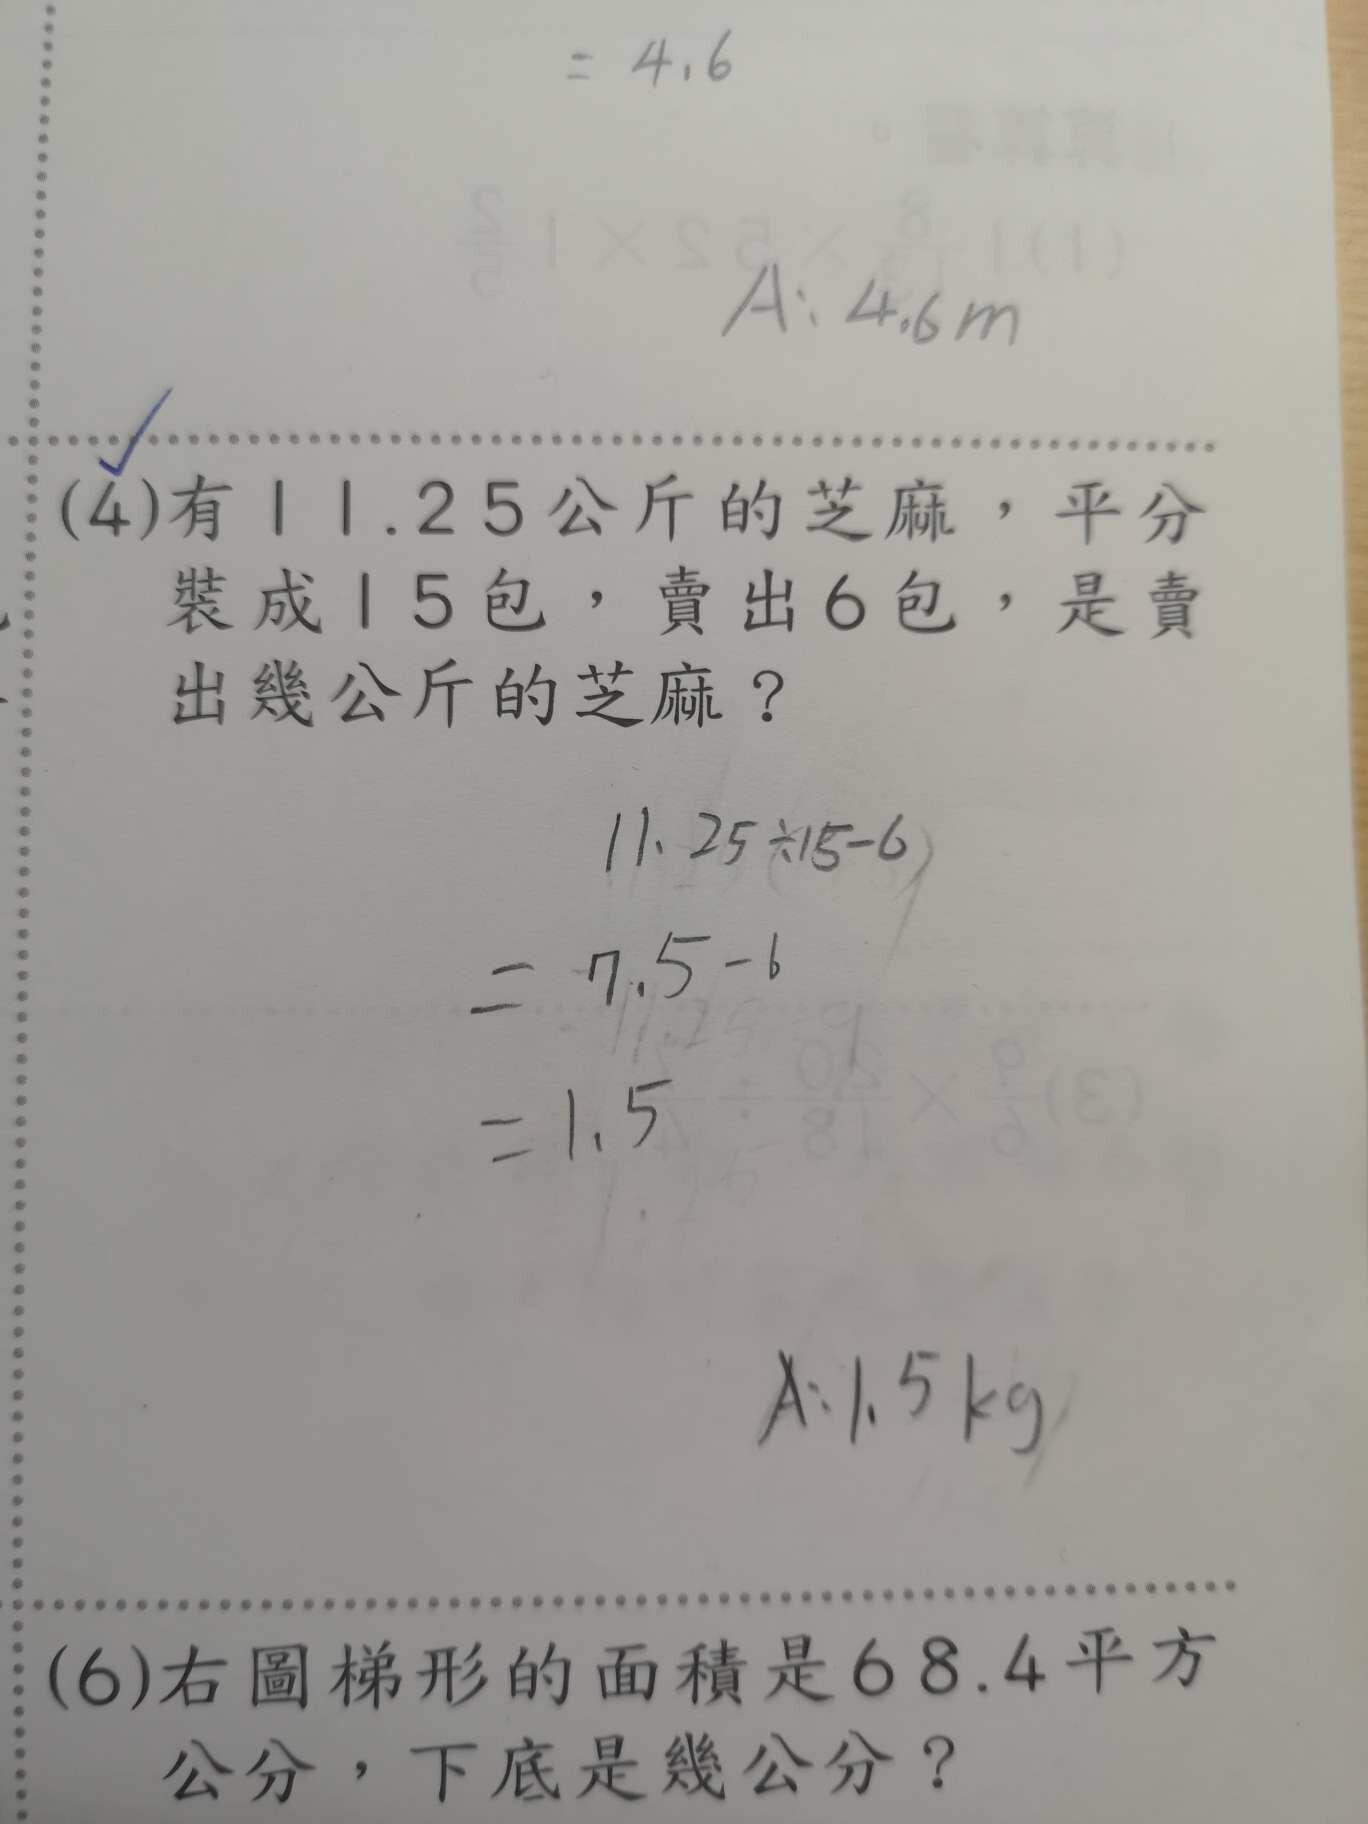 = 4.6
A: 4.6m
(4)有11.25公斤的芝麻，平分
裝成15包，賣出6包，是賣
出幾公斤的芝麻？
11.25÷15-6
= 7.5-6
=1.5
A:1.5kg
(6)右圖梯形的面積是68.4平方
公分，下底是幾公分？